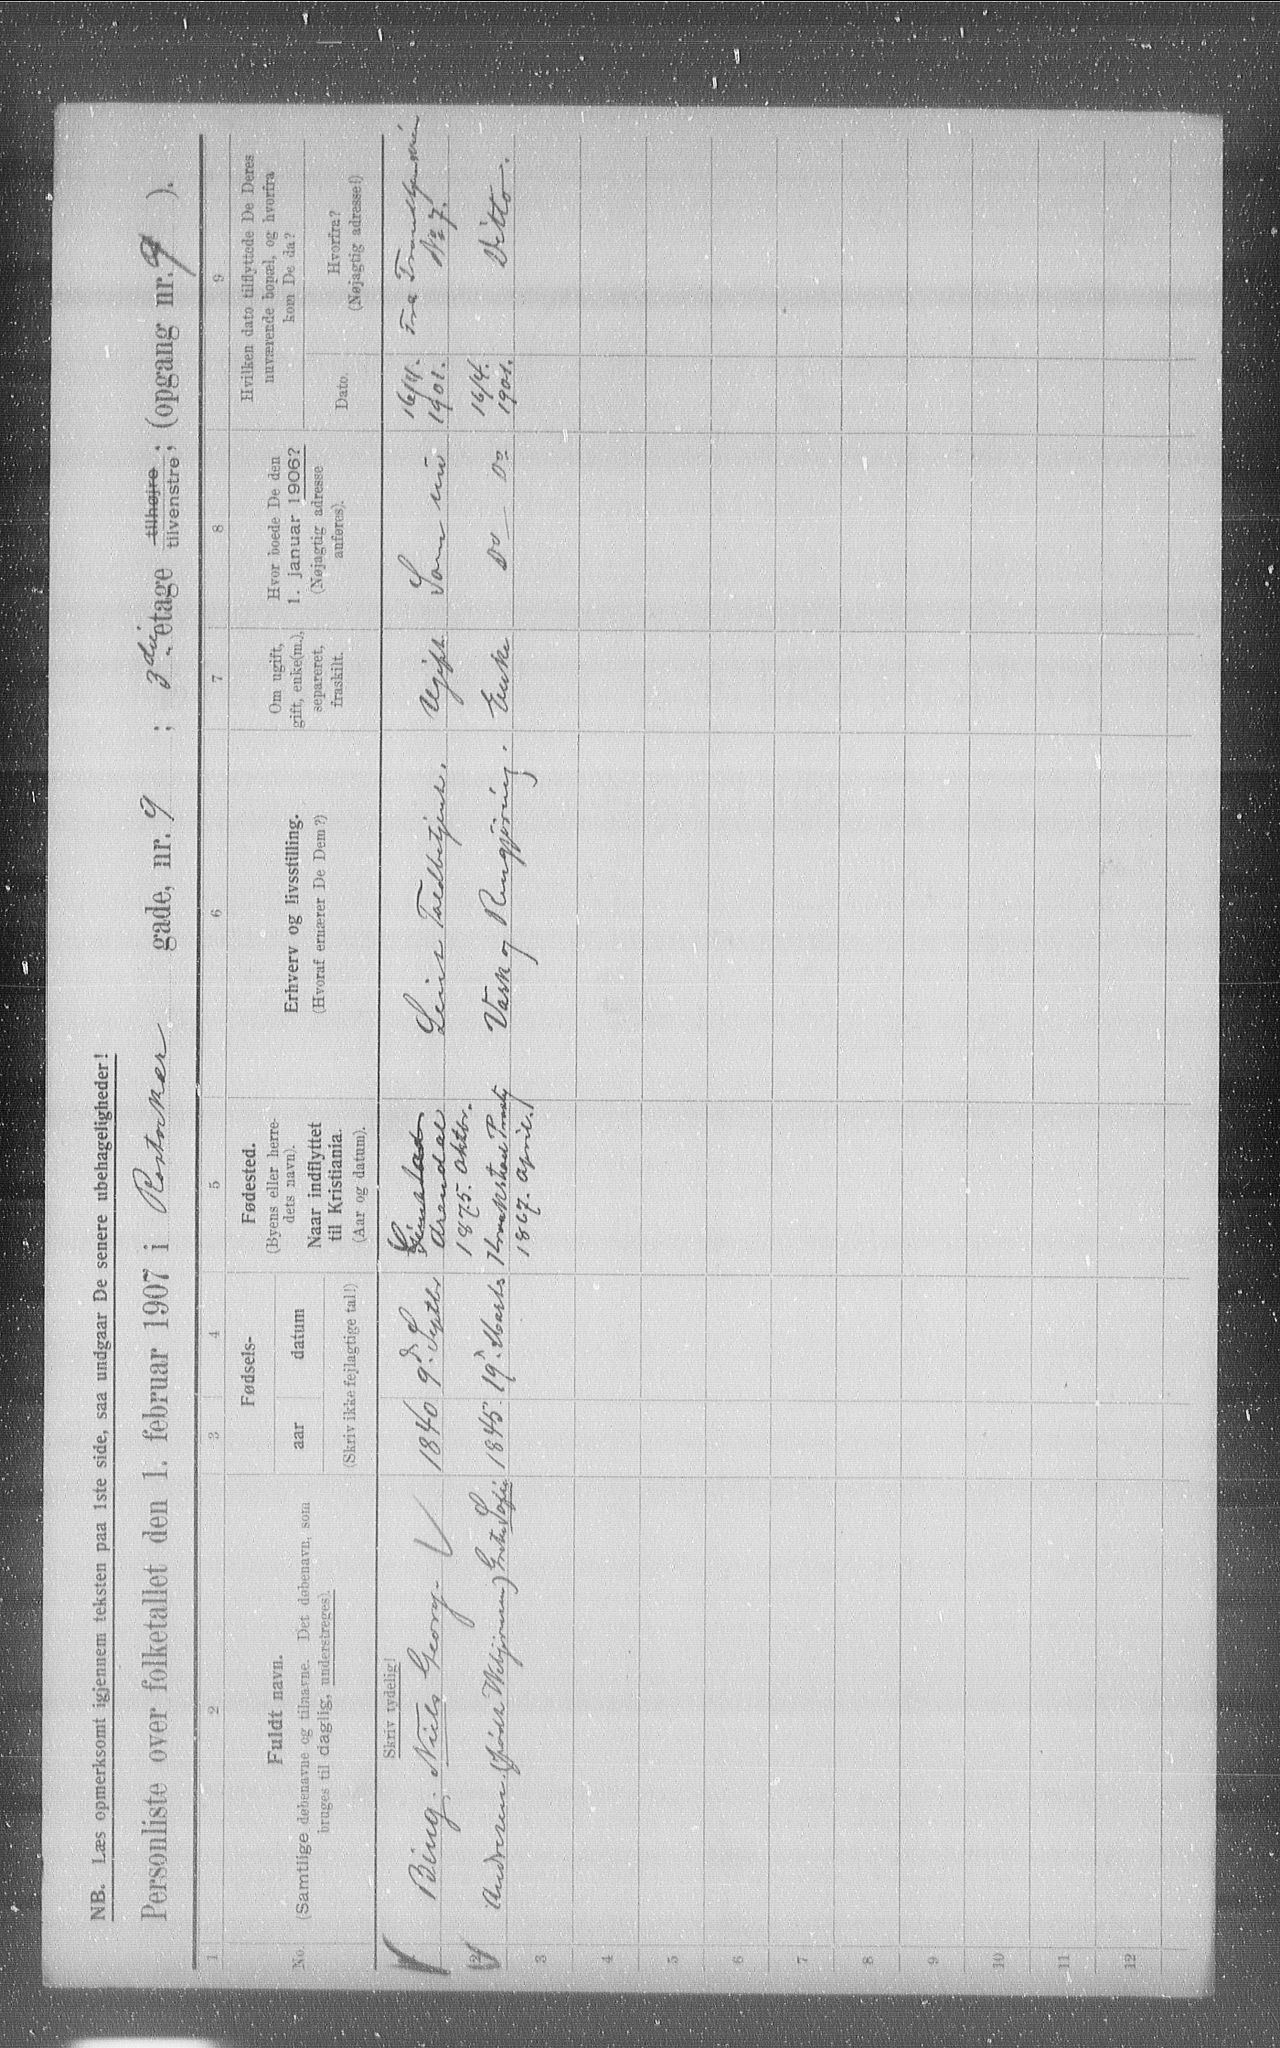 NB. Læs opmerksomt igjennem teksten paa 1ste side, saa undgaar De senere ubehageligheder!
Personliste over folketallet den 1. februar 1907 i Rostocker gade, nr. 9 ; 3die etage tilhøjre tilvenstre; (opgang nr. 9 ).
1 2 3 4 5 6 7 8 9
No.
Fuldt navn.
(Samtlige døbenavne og tilnavne. Det døbenavn, som
bruges til daglig, understreges).
Fødsels-
aar datum
(Skriv ikke fejlagtige tal!)
Fødested.
(Byens eller herre-
dets navn).
Naar indflyttet
til Kristiania.
(Aar og datum).
Erhverv og livsstilling.
(Hvoraf ernærer De Dem?)
Om ugift,
gift, enke(m.),
separeret,
fraskilt.
Hvor boede De den
1. januar 1906?
(Nøjagtig adresse
anføres).
Hvilken dato tilflyttede De Deres
nuværende bopæl, og hvorfra
kom De da?
Dato.
Hvorfra?
(Nøjagtig adresse!)
Skriv tydelig!
Bing. Niels Georg. 1840 9d Septbr
Arendal
1875. Oktbr.
Toldbetjent. Ugift Som nu 16/4. 1901. Fra
No 7.
2 Andresen (født) Sofie 1845. 19d Marts
1867. April.
Vask og Rengjøring. Enke Do Do 16/4. 1901. Ditto.
3
4
5
6
7
8
9
10
11
12